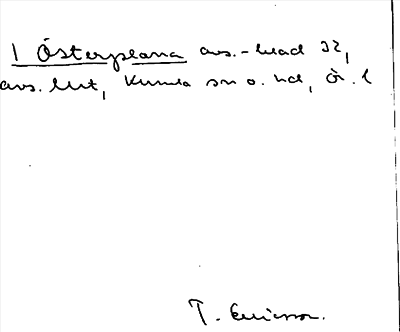 1 Österplana avs.-lead 32,
avs. lut, Kumla sn o. hd, Ö. l
T. Ericsson.